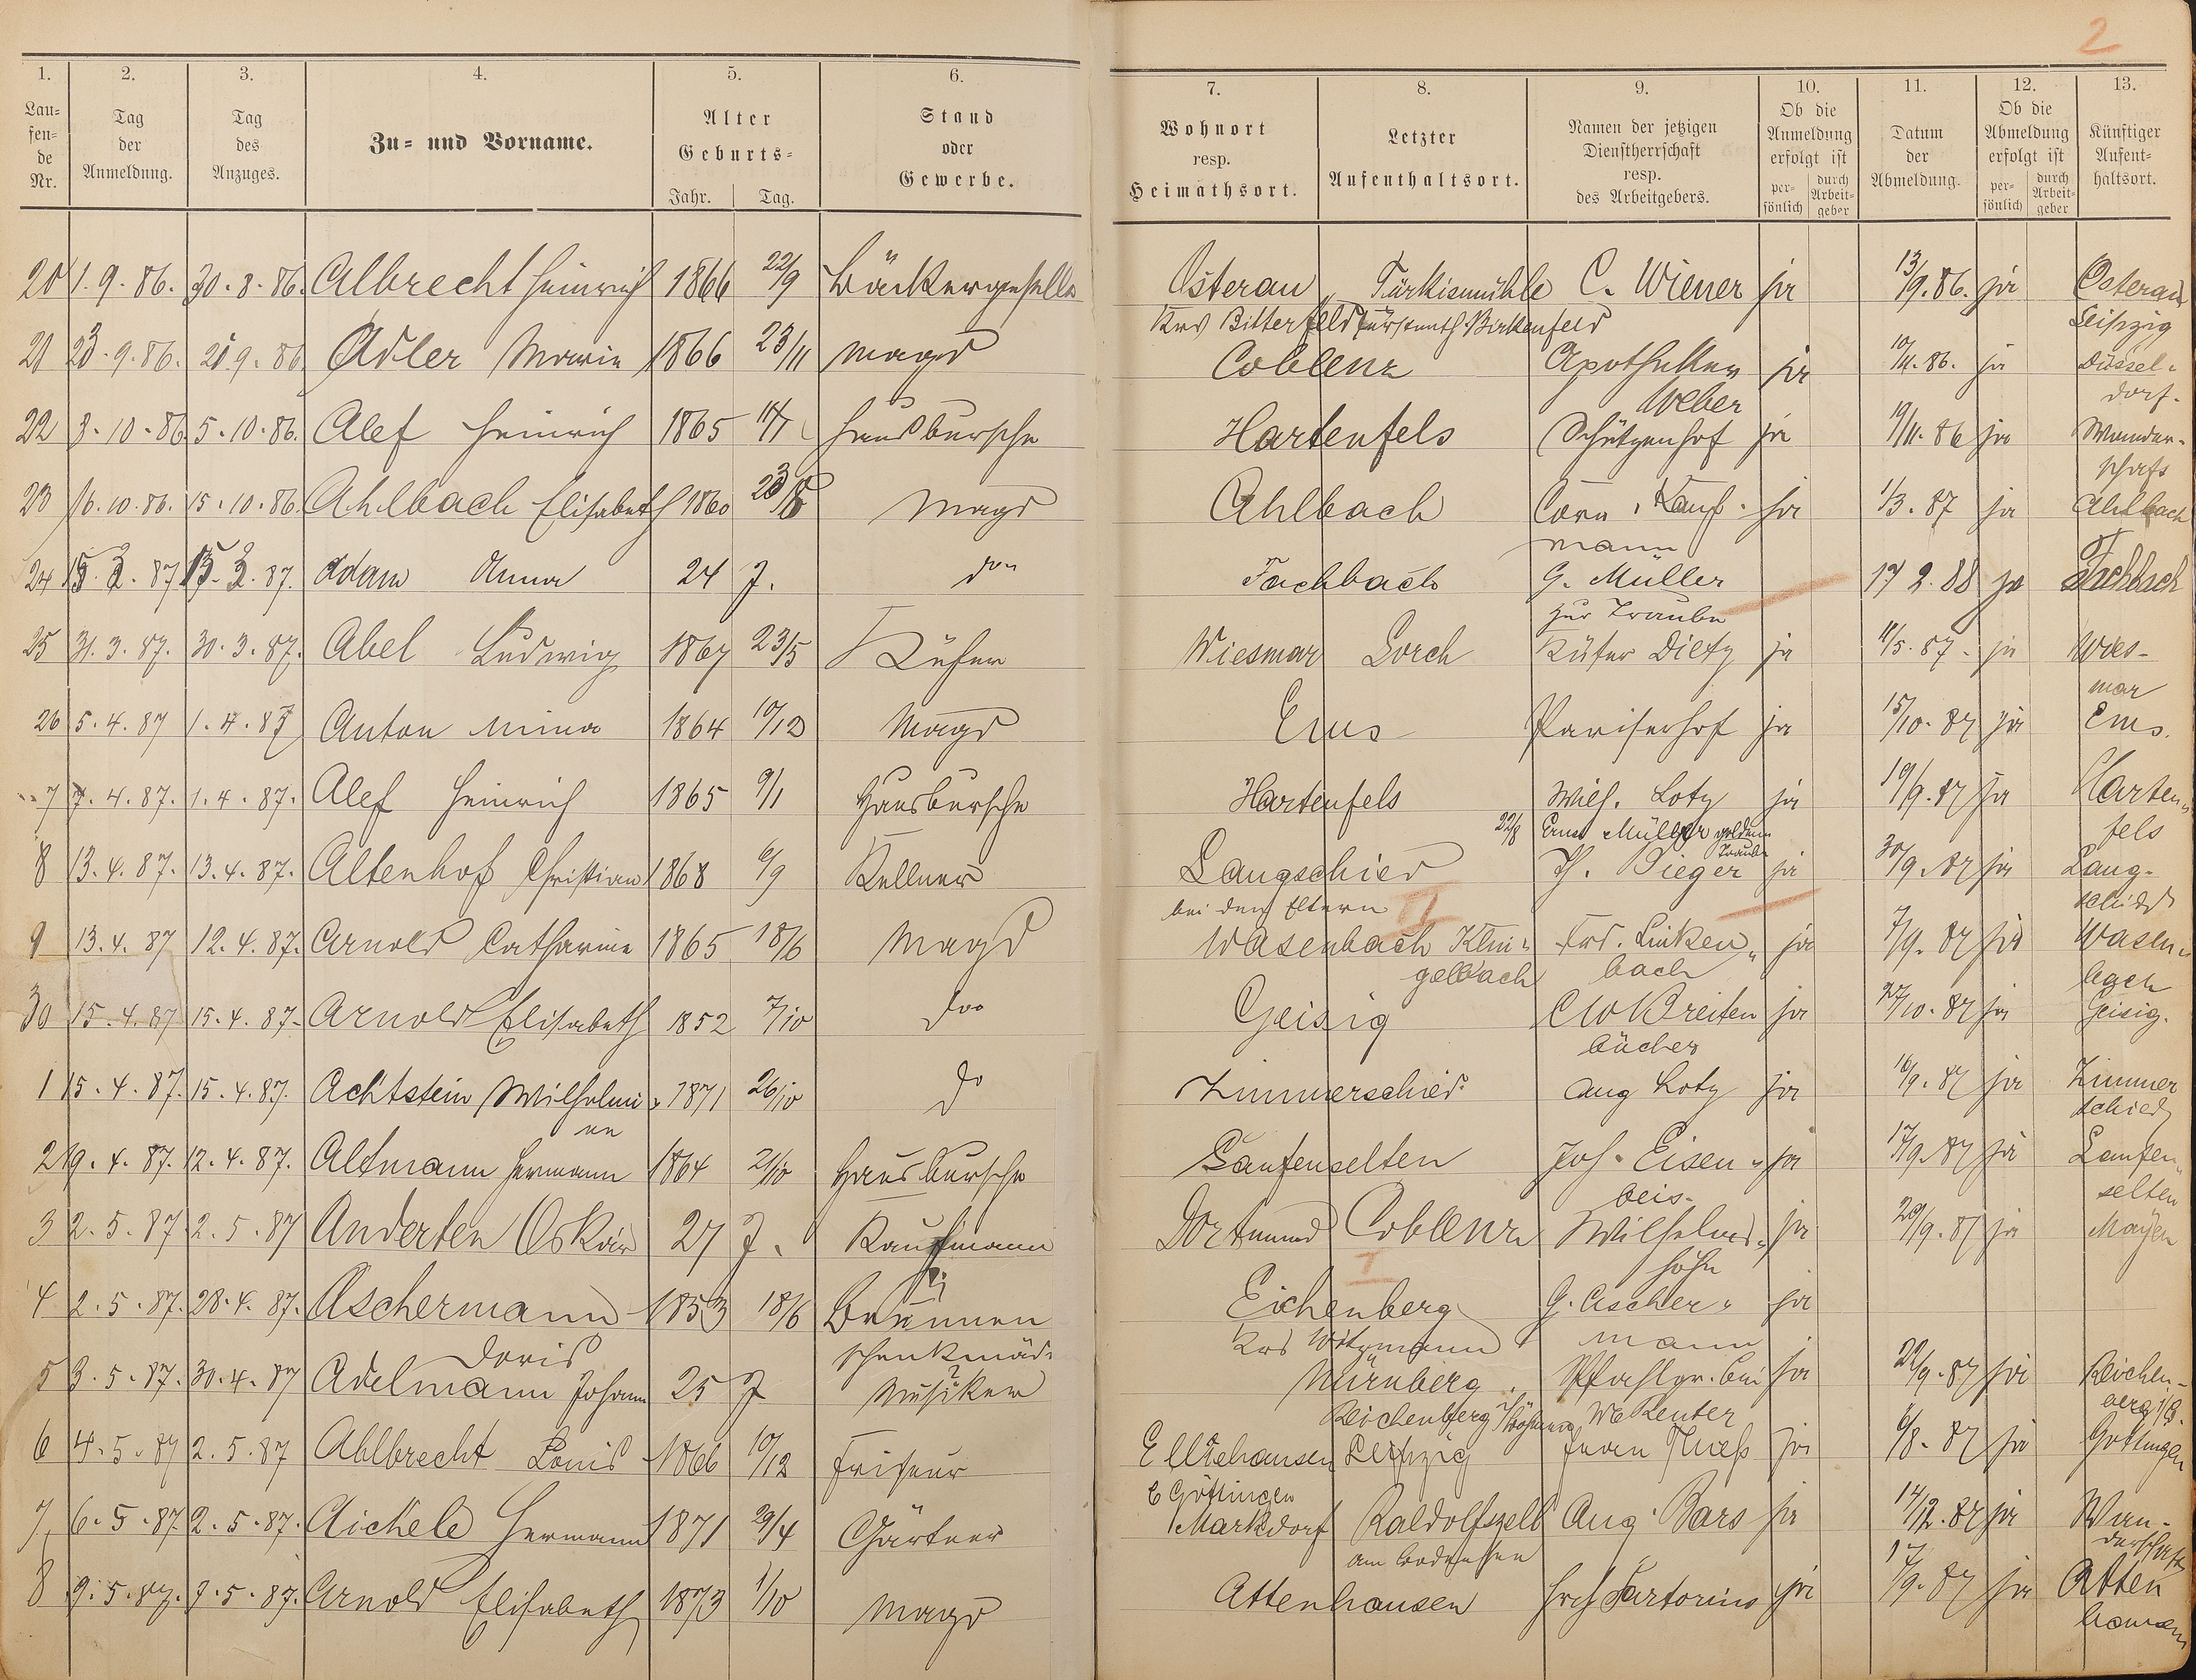 2
1. 2. 3. 4. 5. 6. 7. 8. 9. 10. 11. 12. 13.
Lau-
fen-
de
Nr.
Tag
der
Anmeldung.
Tag
des
Anzuges.
Zu- und Vorname.
Alter
Geburts-
Jahr. Tag.
Stand
oder
Gewerbe.
Wohnort
resp.
Heimathsort.
Letzter
Aufenthaltsort.
Namen der jetzigen
Dienstherrschaft
resp.
des Arbeitgebers.
Ob die
Anmeldung
erfolgt ist
per-
sönlich
durch
Arbeit-
geber
Datum
der
Abmeldung.
Ob die
Abmeldung
erfolgt ist
per-
sönlich
durch
Arbeit-
geber
Künftiger
Aufent-
haltsort.
20 1.9.86. 30.8.86. Albrecht Heinrich 1866 22/9 Bäckergeselle Osterau Türkismühle C. Wiener ja 13/9.86. ja Osterau
Krs Bitterfeld Fürstenth. Birkenfeld Leipzig
21 23.9.86. 21.9.86 Adler Marie 1866 23/11 Magd Coblenz Apotheker ja 10/11.86. ja Düssel-
Weber dorf.
22 8.10.86. 5.10.86. Alef Heinrich 1865 Hausbursche Hartenfels Schützenhof ja 19/11.86 ja Wander-
schaft
23 16.10.86. 15.10.86. Ahlbach Elisabeth 1860 Magd Ahlbach Kauf- ja 1/3.87 ja Ahlbach
mann
24 15.3.87 15.3.87. Adam Anna 24 J. do Fachbach G. Müller 17 2.88 ja Fachbach
zur Traube
25 31.3.87. 30.3.87. Abel Ludwig 1867 23/5 Küfer Wiesmar Lorch Küfer Dietz ja 11/5.87. ja Wies-
mar
26 5.4.87 1.4.87 Anton Mina 1864 10/12 Magd Ems Pariserhof ja 15/10.87 ja Ems.
7 7.4.87. 1.4.87. Alef Heinrich 1865 9/1 Hausbursche Hartenfels Wilh. Lotz ja 19/9.87 ja Harten-
22/8 Müller goldene fels
Traube
8 13.4.87. 13.4.87. Altenhof Christian 1868 6/9 Kellner Langschied H. Bieger ja 30/9.87 ja Lang-
bei den Eltern II schied
9 13.4.87 12.4.87. Arnold Catharine 1865 18/6 Magd Wasenbach Klin- Frd. Linken- ja 7/9.87 ja Wasen-
gelbach bach bach
30 15.4.87 15.4.87. Arnold Elisabeth 1852 7/10 do Geisig Breiten ja 27/10.87 ja Geisig.
bücher
1 15.4.87. 15.4.87. Achtstein Wilhelmi- 1871 26/10 do Zimmerschied Aug Lotz ja 16/9.87 ja Zimmer
ne schied
2 19.4.87. 12.4.87. Altmann Hermann 1864 21/10 Hausbursche Laufenselten Joh. Eisen- ja 17/9.87 ja Laufen-
beis. selten
3 2.5.87 2.5.87 Anderten Oskar 27 J. Kaufmann Dortmund Coblenz Wilhelms- ja 20/9.87 ja Mayen
I höhe
4 2.5.87. 28.4.87. Aschermann 1853 18/6 Brunnen Eichenberg G. Ascher- ja
Doris schenkmäd- Krs Witzmann mann
5 3.5.87. 30.4.87 Adelmann Johann 25 J Musiker Nürnberg Pfahlgr. bei ja 22/9.87 ja Reichen-
Reichenberg i/Böhmen We Reuter berg i/B.
6 4.5.87 2.5.87 Ahlbrecht Louis 1866 10/12 Friseur Elliehausen Leipzig Thieß ja 6/8.87 ja Göttingen
Göttingen
7 6.5.87. 2.5.87. Aichele Hermann 1871 29/4 Gärtner Markdorf Radolfszell Aug. Bars ja 14/12.87 ja Wan-
am Bodensee derschaft
8 9.5.87. 7.5.87. Arnold Elisabeth 1873 1/10 Magd Attenhausen Sartorius ja 17/9.87 ja Atten
hausen